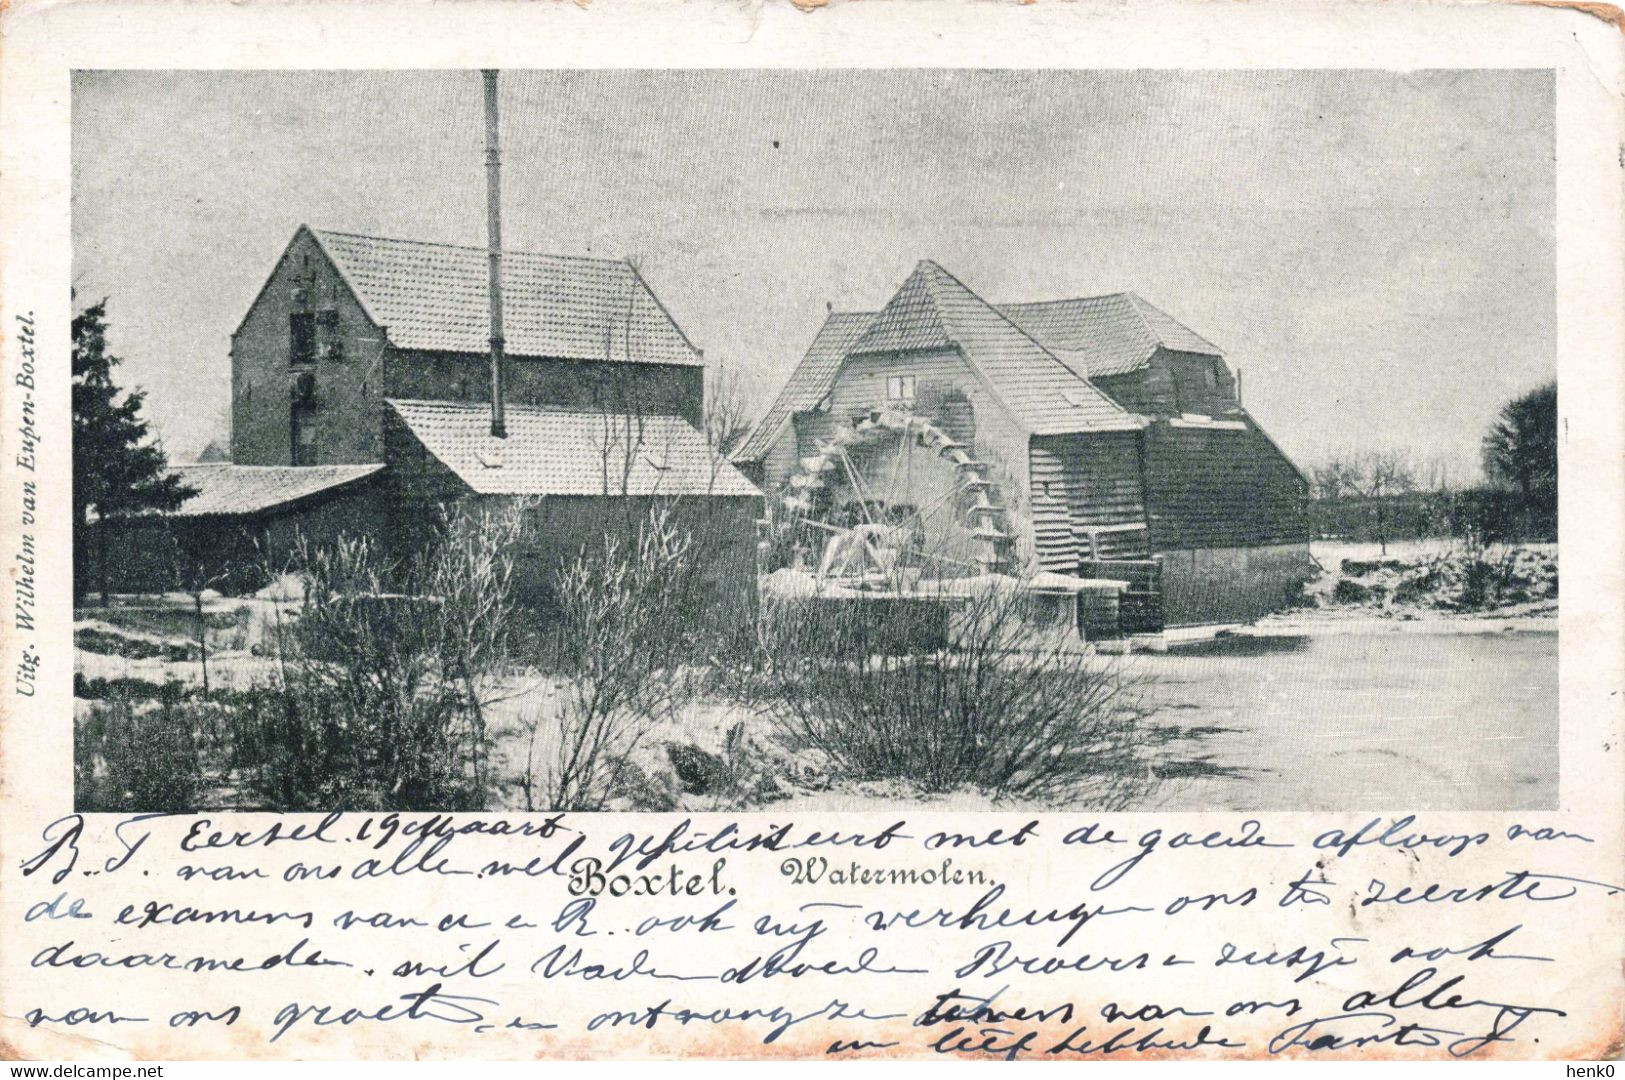 Uitg. Wilhelm van Eupen-Boxtel.
B. T. Eersel. 19 Maart. gefeliciteerd met de goede afloop van
van ons allen wel
Boxtel. Watermolen.
de examens van a en B.. ook wij verheugen ons ten zeerste
daarmede. wil Vader Moeder Broers en zusje ook
van ons groeten en ontvang ze tevens van ons allen
en liefhebbende Tante J.
henk0